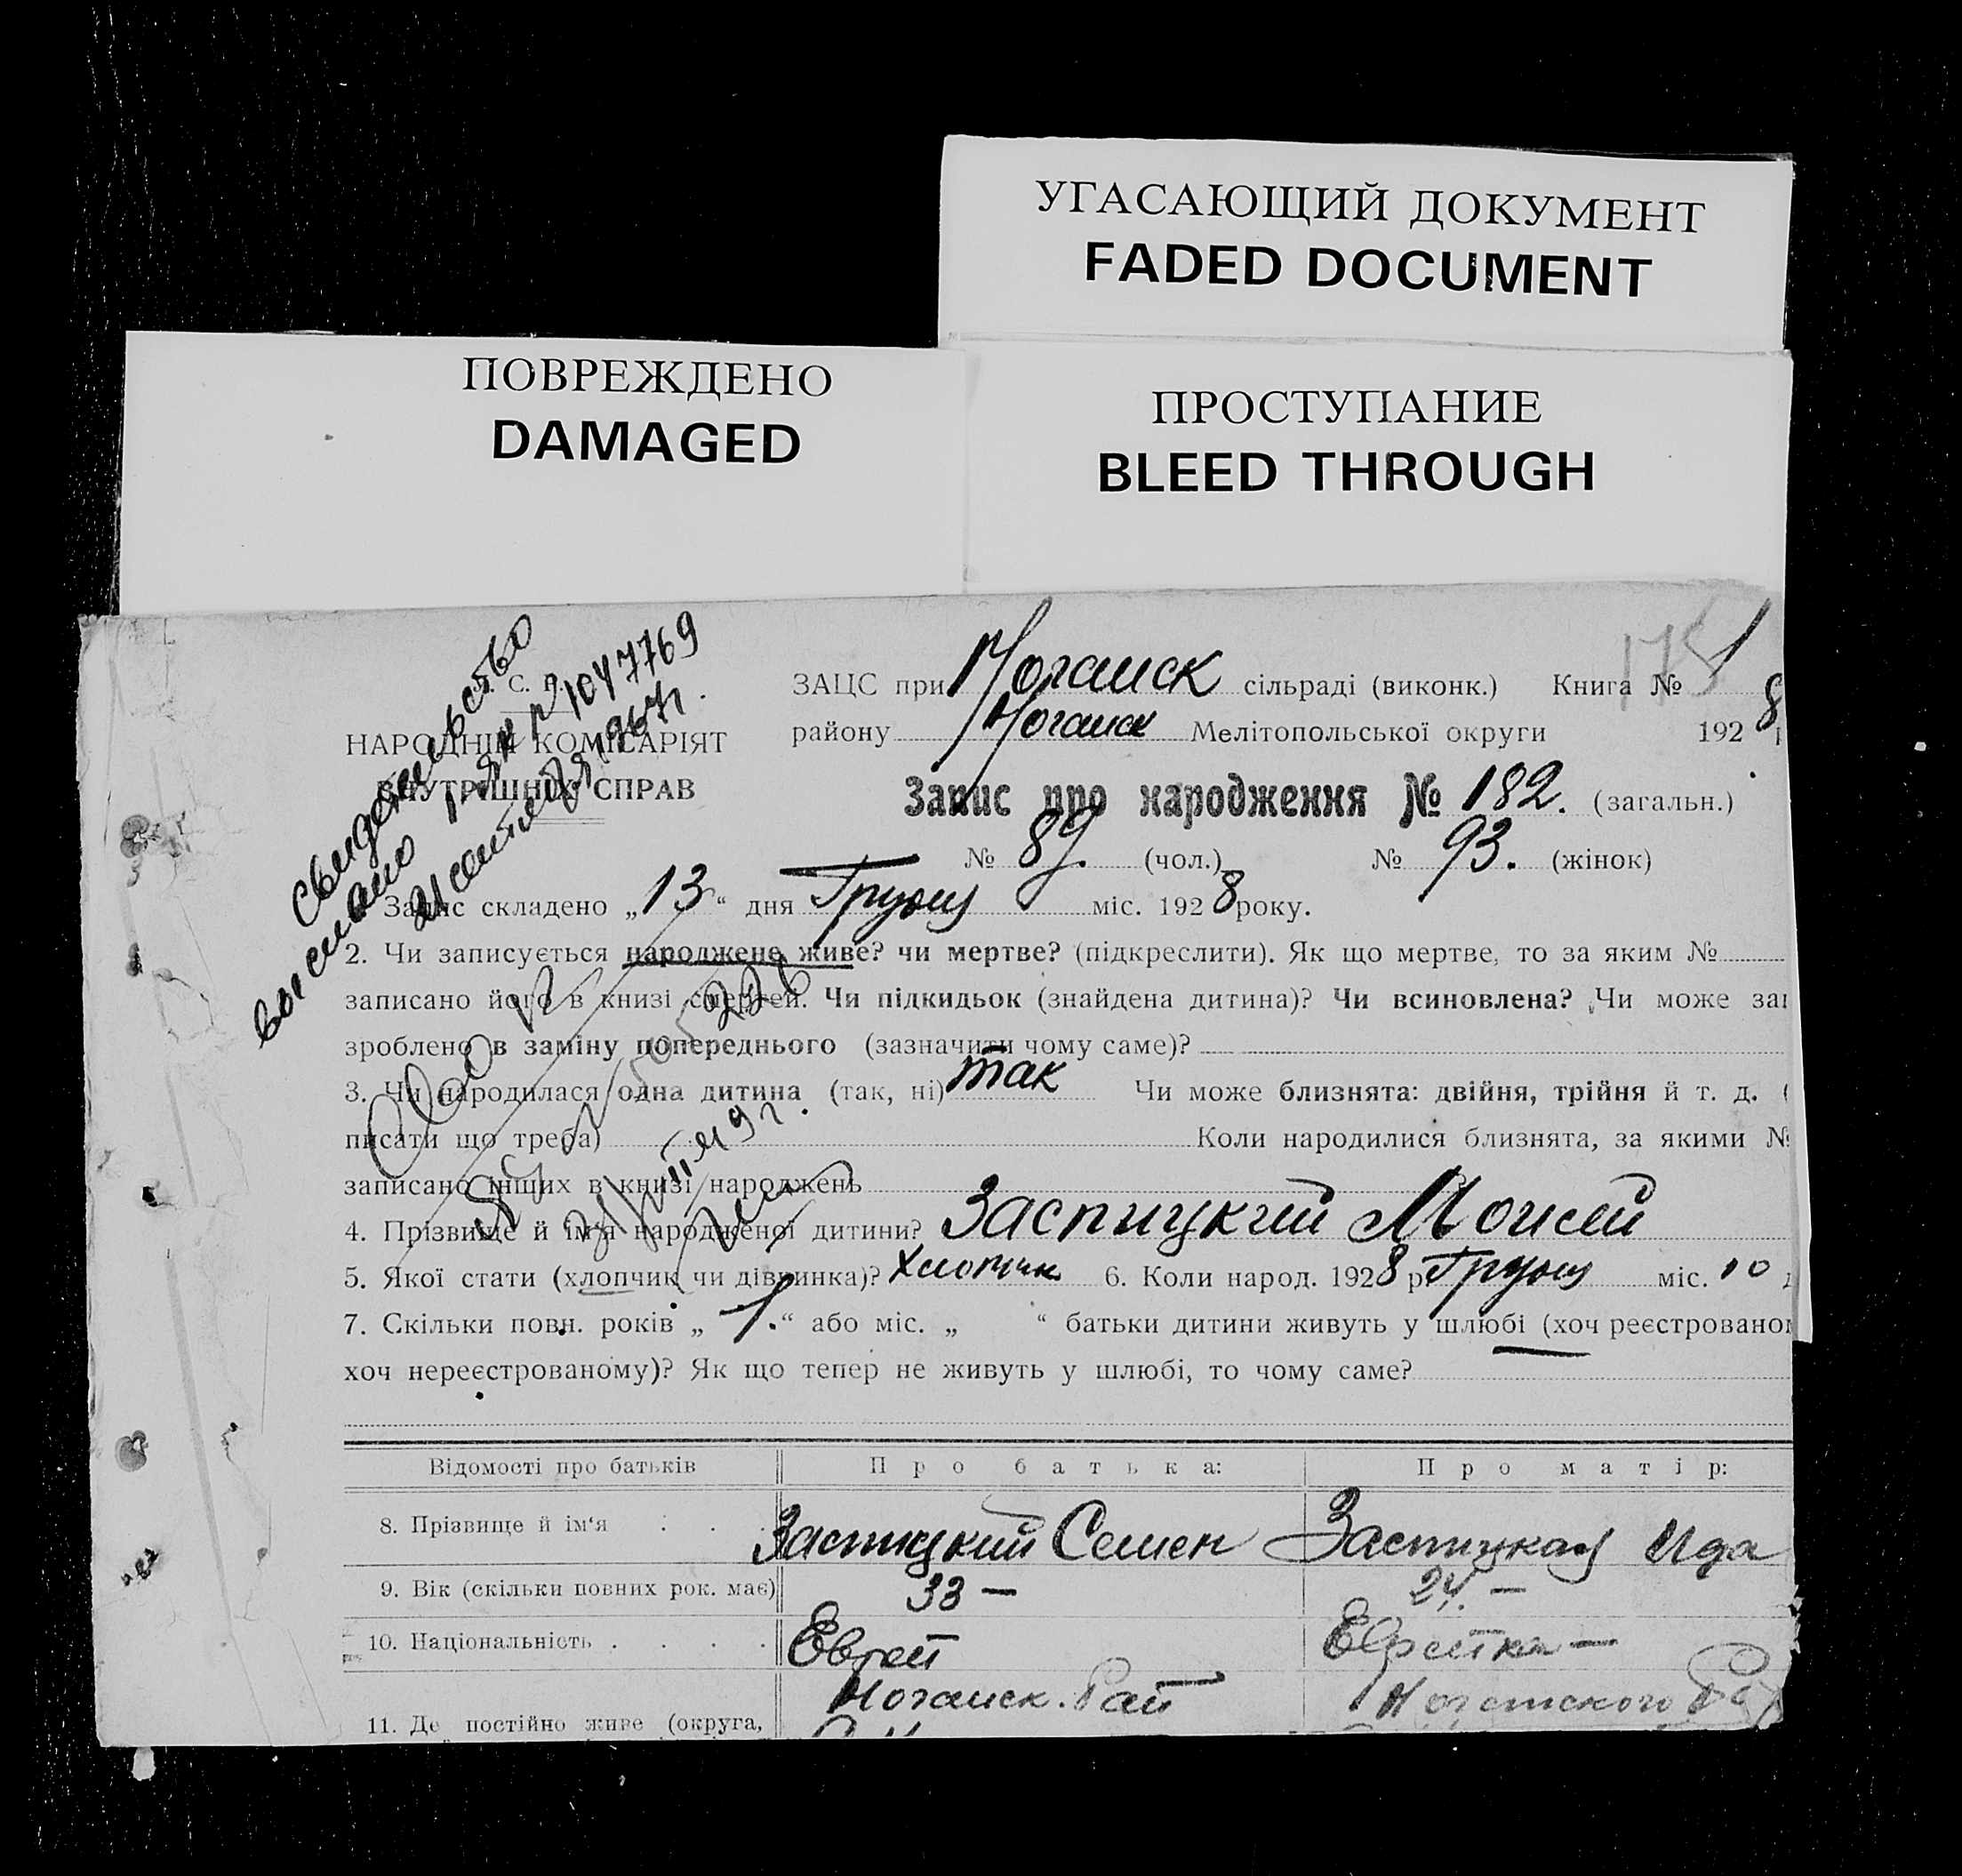 УГАСАЮЩИЙ ДОКУМЕНТ
FADED DOCUMENT
ПОВРЕЖДЕНО
DAMAGED
ПРОСТУПАНИЕ
BLEED THROUGH
свидетельство
выслано I-ЯИ № 1047769
21 сентября 1967 г.
С.
НАРОДНІЙ КОМІСАРІЯТ
ВНУТРІШНІХ СПРАВ
ЗАЦС при Ногайск сільраді (виконк.) Книга №
району Ногайск Мелітопольської округи 1928
Запис про народження № 182. (загальн.)
№ 89. (чол.) № 93. (жінок)
Запис складено „13“ дня Грудня міс. 1928 року.
2. Чи записується народжене живе? чи мертве? (підкреслити). Як що мертве, то за яким №
записано його в книзі смертей. Чи підкидьок (знайдена дитина)? Чи всиновлена? Чи може за
зроблено в заміну попереднього (зазначити чому саме)?
3. Чи народилася одна дитина (так, ні) так Чи може близнята: двійня, трійня й т. д. (
писати що треба) Коли народилися близнята, за якими №
записано інших в книзі народжень
4. Прізвище й ім'я народженої дитини? Заспицкий Моисей
5. Якої стати (хлопчик чи дівчинка)? Хлопчик 6. Коли народ. 1928 р. Грудня міс. 10
7. Скільки повн. років „1.“ або міс. „ “ батьки дитини живуть у шлюбі (хоч реєстровано
хоч нереєстрованому)? Як що тепер не живуть у шлюбі, то чому саме?
Відомості про батьків Про батька: Про матір:
8. Прізвище й ім'я Заспицкий Семен Заспицкая Ида
9. Вік (скільки повних рок. має) 33 — 24. —
10. Національність Еврей Еврейка —
Ногайск. Рай Ногайского Рай
11. Де постійно живе (округа,